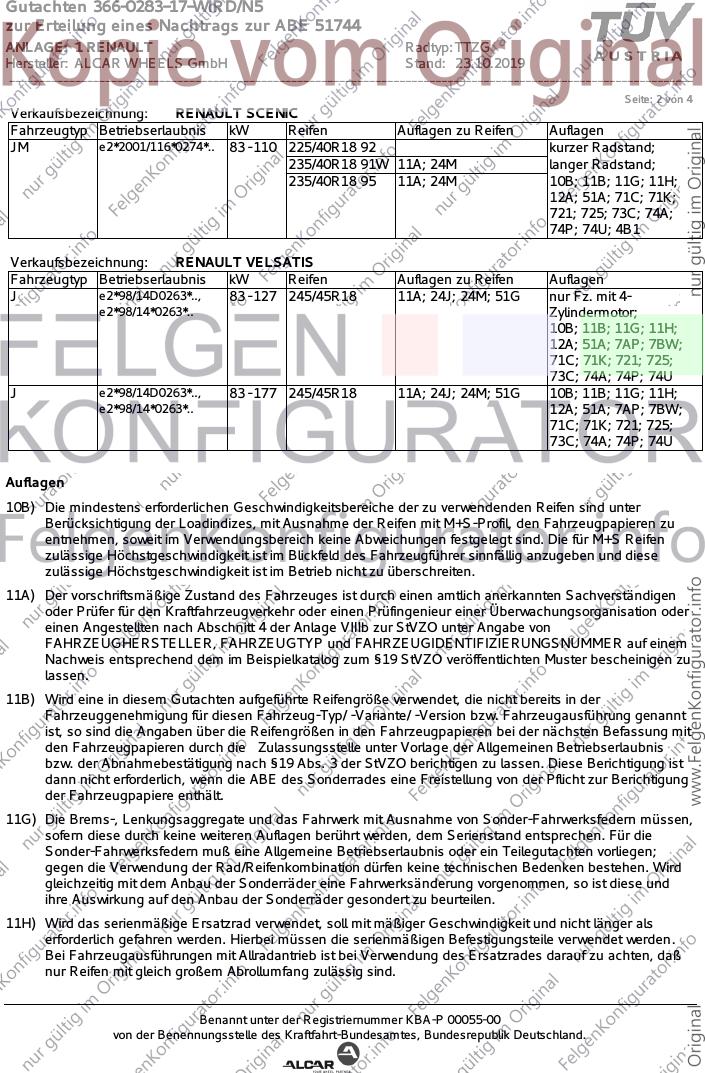 Gutachten 366-0283-17-WIRD/N5
zur Erteilung eines Nachtrags zur ABE 51744
ANLAGE: 1 RENAULT Radtyp: TTZG
Hersteller: ALCAR WHEELS GmbH Stand: 23.10.2019
TÜV
AUSTRIA
Kopie vom Original
Seite: 2 von 4
Verkaufsbezeichnung: RENAULT SCENIC
Fahrzeugtyp Betriebserlaubnis kW Reifen Auflagen zu Reifen Auflagen
JM e2*2001/116*0274*.. 83-110 225/40R18 92 kurzer Radstand;
235/40R18 91W 11A; 24M langer Radstand;
235/40R18 95 11A; 24M 10B; 11B; 11G; 11H;
12A; 51A; 71C; 71K;
721; 725; 73C; 74A;
74P; 74U; 4B1
Verkaufsbezeichnung: RENAULT VELSATIS
Fahrzeugtyp Betriebserlaubnis kW Reifen Auflagen zu Reifen Auflagen
J e2*98/14D0263*.., 83-127 245/45R18 11A; 24J; 24M; 51G nur Fz. mit 4-
e2*98/14*0263*.. Zylindermotor;
10B; 11B; 11G; 11H;
12A; 51A; 7AP; 7BW;
71C; 71K; 721; 725;
73C; 74A; 74P; 74U
J e2*98/14D0263*.., 83-177 245/45R18 11A; 24J; 24M; 51G 10B; 11B; 11G; 11H;
e2*98/14*0263*.. 12A; 51A; 7AP; 7BW;
71C; 71K; 721; 725;
73C; 74A; 74P; 74U
FELGEN
KONFIGURATOR
FelgenKonfigurator.info
Auflagen
10B) Die mindestens erforderlichen Geschwindigkeitsbereiche der zu verwendenden Reifen sind unter
Berücksichtigung der Loadindizes, mit Ausnahme der Reifen mit M+S-Profil, den Fahrzeugpapieren zu
entnehmen, soweit im Verwendungsbereich keine Abweichungen festgelegt sind. Die für M+S Reifen
zulässige Höchstgeschwindigkeit ist im Blickfeld des Fahrzeugführer sinnfällig anzugeben und diese
zulässige Höchstgeschwindigkeit ist im Betrieb nicht zu überschreiten.
11A) Der vorschriftsmäßige Zustand des Fahrzeuges ist durch einen amtlich anerkannten Sachverständigen
oder Prüfer für den Kraftfahrzeugverkehr oder einen Prüfingenieur einer Überwachungsorganisation oder
einen Angestellten nach Abschnitt 4 der Anlage VIIIb zur StVZO unter Angabe von
FAHRZEUGHERSTELLER, FAHRZEUGTYP und FAHRZEUGIDENTIFIZIERUNGSNUMMER auf einem
Nachweis entsprechend dem im Beispielkatalog zum §19 StVZO veröffentlichten Muster bescheinigen zu
lassen.
11B) Wird eine in diesem Gutachten aufgeführte Reifengröße verwendet, die nicht bereits in der
Fahrzeuggenehmigung für diesen Fahrzeug-Typ/ -Variante/ -Version bzw. Fahrzeugausführung genannt
ist, so sind die Angaben über die Reifengrößen in den Fahrzeugpapieren bei der nächsten Befassung mit
den Fahrzeugpapieren durch die Zulassungsstelle unter Vorlage der Allgemeinen Betriebserlaubnis
bzw. der Abnahmebestätigung nach §19 Abs. 3 der StVZO berichtigen zu lassen. Diese Berichtigung ist
dann nicht erforderlich, wenn die ABE des Sonderrades eine Freistellung von der Pflicht zur Berichtigung
der Fahrzeugpapiere enthält.
11G) Die Brems-, Lenkungsaggregate und das Fahrwerk mit Ausnahme von Sonder-Fahrwerksfedern müssen,
sofern diese durch keine weiteren Auflagen berührt werden, dem Serienstand entsprechen. Für die
Sonder-Fahrwerksfedern muß eine Allgemeine Betriebserlaubnis oder ein Teilegutachten vorliegen;
gegen die Verwendung der Rad/Reifenkombination dürfen keine technischen Bedenken bestehen. Wird
gleichzeitig mit dem Anbau der Sonderräder eine Fahrwerksänderung vorgenommen, so ist diese und
ihre Auswirkung auf den Anbau der Sonderräder gesondert zu beurteilen.
11H) Wird das serienmäßige Ersatzrad verwendet, soll mit mäßiger Geschwindigkeit und nicht länger als
erforderlich gefahren werden. Hierbei müssen die serienmäßigen Befestigungsteile verwendet werden.
Bei Fahrzeugausführungen mit Allradantrieb ist bei Verwendung des Ersatzrades darauf zu achten, daß
nur Reifen mit gleich großem Abrollumfang zulässig sind.
Benannt unter der Registriernummer KBA-P 00055-00
von der Benennungsstelle des Kraftfahrt-Bundesamtes, Bundesrepublik Deutschland.
ALCAR
www.FelgenKonfigurator.info
nur gültig im Original